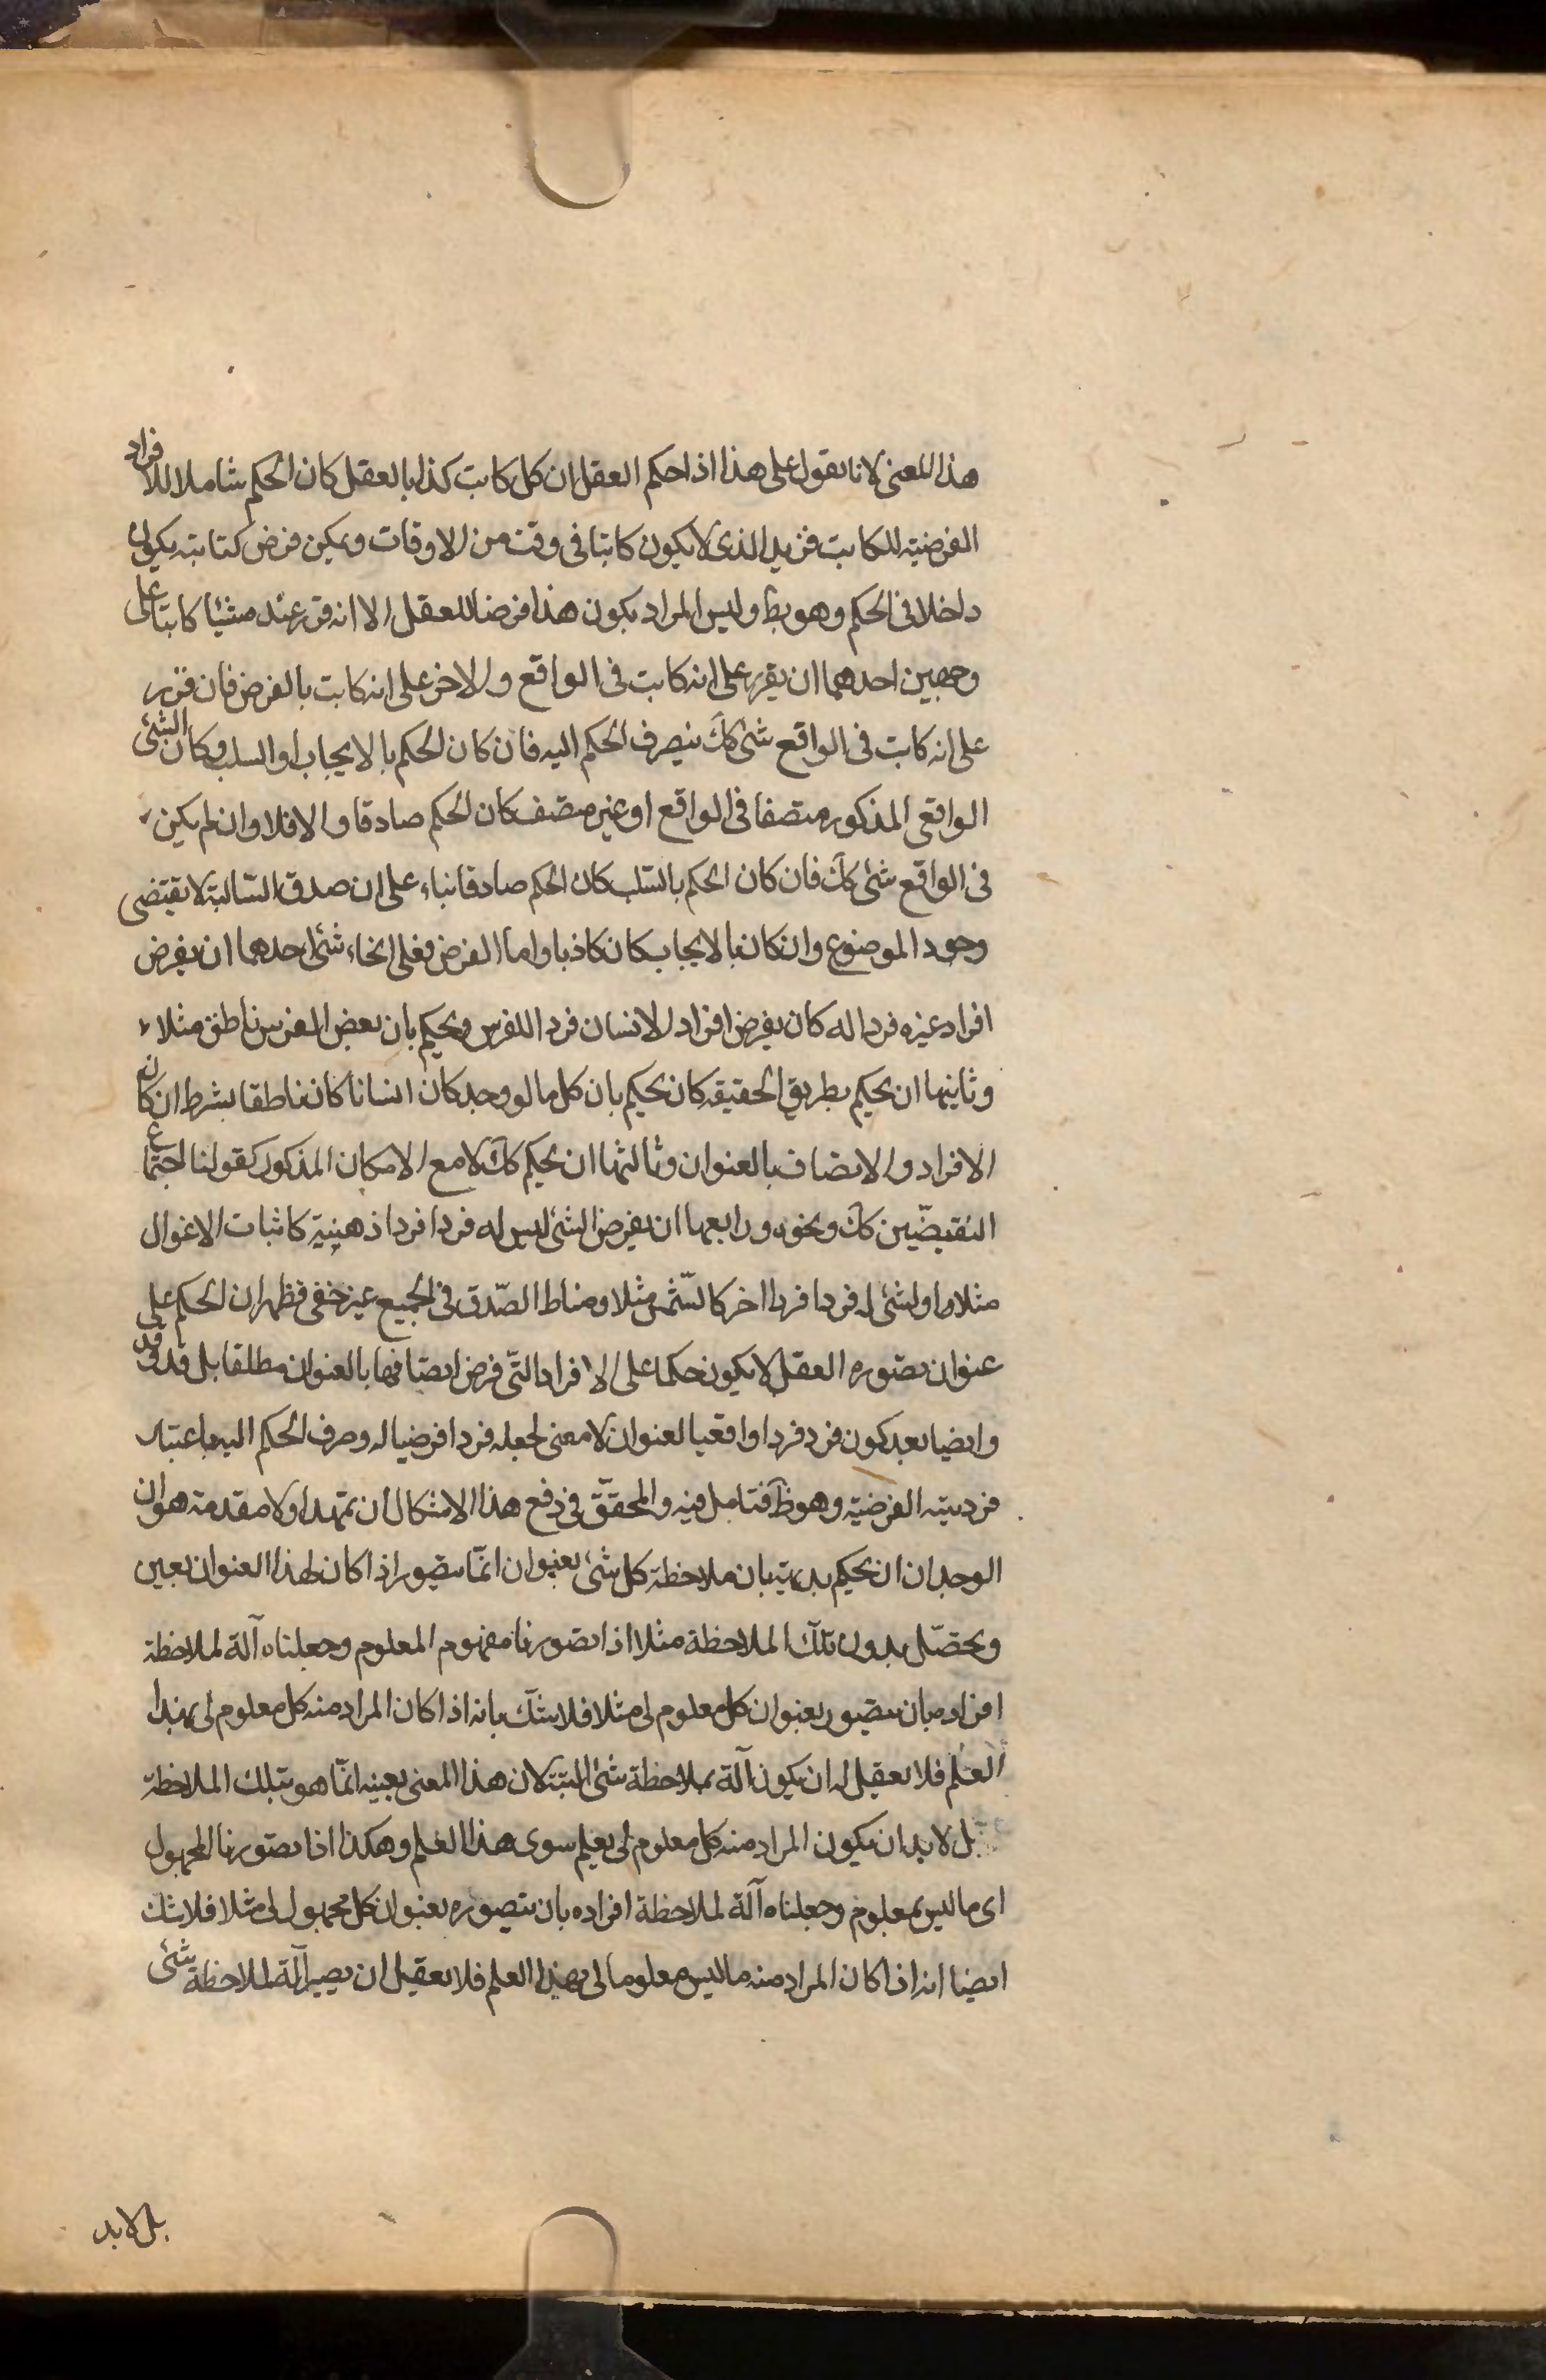 هذا المعنى لانا نقول على هذا اذا حكم العقل ان كل كاتب كذا بالعقل كان الحكم شاملا للافراد
الفرضيته للكاتب فزيد الذى لا يكون كاتبا فى وقت من الاوقات ويمكن فرض كتابته يكون
داخلا فى الحكم وهو بط وليس المراد بكون هذا فرضا للعقل الا انه قرر عنده شيئا كاتبا على
وجهين احدهما ان يقرر على انه كاتب فى الواقع والاخر على انه كاتب بالفرض فان قرر
على انه كاتب فى الواقع شئ كك ينصرف الحكم اليه فان كان الحكم بالايجاب او السلب وكان الشئ
الواقعى المذكور متصفا فى الواقع او غير متصف كان الحكم صادقا والا فلا وان لم يكن
فى الواقع شئ كك فان كان الحكم بالسّلب كان الحكم صادقا بناء على ان صدق السّالبة لا يقتضى
وجود الموضوع وان كان بالايجاب كان كاذبا واما الفرض فعلى انحاء شئ احدهما ان يفرض
افراد غيره فردا له كان يفرض افراد الانسان فردا للفرس ويحكم بان بعض الفرس ناطق مثلا
وثانيها ان يحكم بطريق الحقيقه كان يحكم بان كل ما لو وجد كان انسانا كان ناطقا بشرط امكان
الافراد والاتصاف بالعنوان وثالثها ان يحكم كك لا مع الامكان المذكور كقولنا اجتماع
النقيضّين كك ونحوه ورابعها ان يفرض الشئ ليس له فرد افردا ذهنية كاثبات الاغوال
مثلا او لشئ له فرد افردا اخر كالشّمس مثلا ومناط الصّدق فى الجميع غير خفى فظهر ان الحكم على
عنوان تصّوره العقل لا يكون حكما على الافراد التّى فرض اتصّافها بالعنوان مطلقا بل قد وقد
وايضا بعد كون فرد فردا واقعيا لعنوان لا معنى لجعله فردا فرضيا له وصرف الحكم اليه باعتبار
فرديته الفرضيّة وهو ظ فتامل فيه والمحقّق فى دفع هذا الاشكال ان تمهد اولا مقدمة هو ان
الوجدان ان يحكم بديهة بان ملاحظة كل شئ بعنوان انمّا يتصّور اذا كان لهذا العنوان تعين
وتحصّل بدون تلك الملاحظة مثلا اذا تصورنا مفهوم المعلوم وجعلناه آلة لملاحظة
افراده بان يتصّور بعنوان كل معلوم لى مثلا فلا شك بانه اذا كان المراد منه كل معلوم لى بهذا
العلم فلا يعقل له ان يكون آلة بملاحظة شئ البتة لان هذا المعنى بعينه انمّا هو بتلك الملاحظة
بل لا بد ان يكون المراد منه كل معلوم لى بعلم سوى هذا العلم وهكذا اذا تصّورنا المجهول
اى ما ليس بمعلوم وجعلناه آلة لملاحظة افراده بان يتصوره بعنوان كل مجهول لى مثلا فلا شك
ايضا انه اذا كان المراد منه ما ليس معلوما لى بهذا العلم فلا يعقل ان يصير آلة لملاحظة شئ
بل لا بد